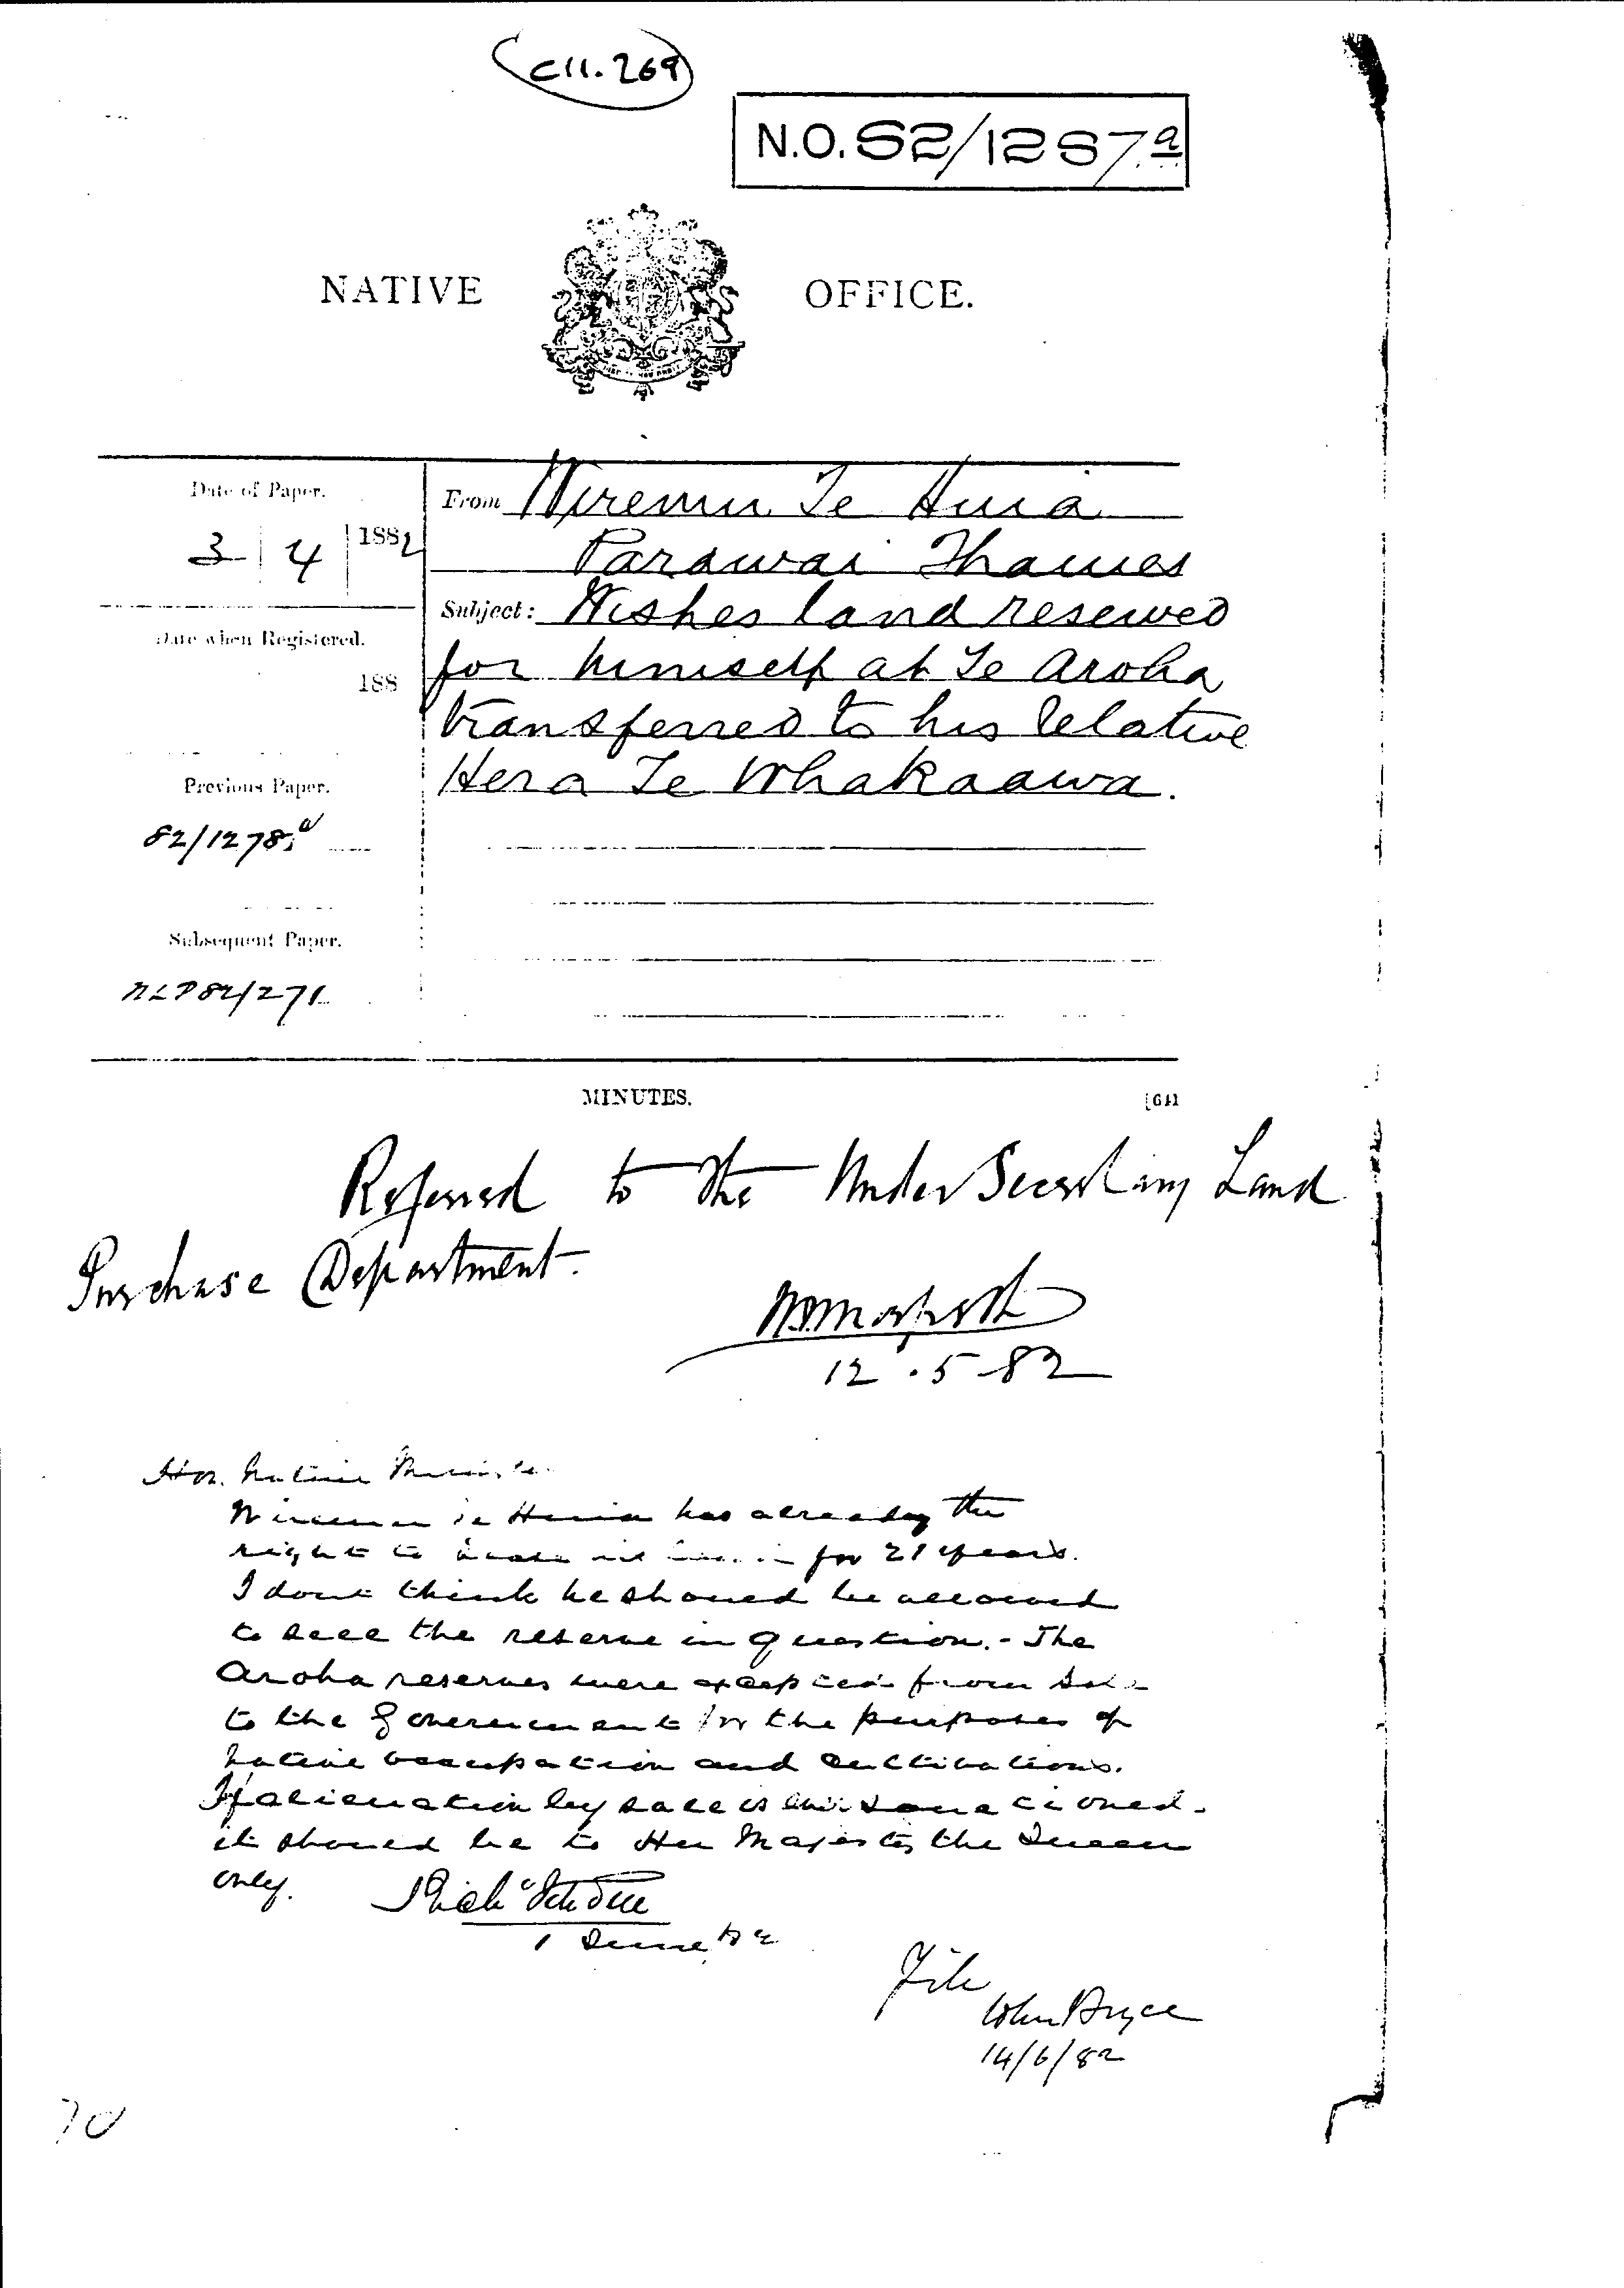 C11.269
N.O. 82/1287a
NATIVE OFFICE.
Date of Paper.
3 | 4 | 1882
From Wiremu Te Huia
Parawai Thames
Subject: Wishes land reserved
for himself at Te Aroha
transferred to his relative
Hera Te Whakaawa.
Date when Registered.
188
Previous Paper.
82/1278a
Subsequent Paper.
NLP 82/271
MINUTES.
Referred to the Under Secretary Land
Purchase Department.
12.5.82
Hon. Native Minister
Wiremu Te Huia has already the
right to for 21 years.
I dont think he should be allowed
to sell the reserve in question. - The
Aroha reserves were excepted from sale
to the Government for the purposes of
Native occupation and cultivations.
If alienation by sale is sanctioned
it should be to Her Majesty the Queen
only.
1 June 82
File
John Bryce
14/6/82
70